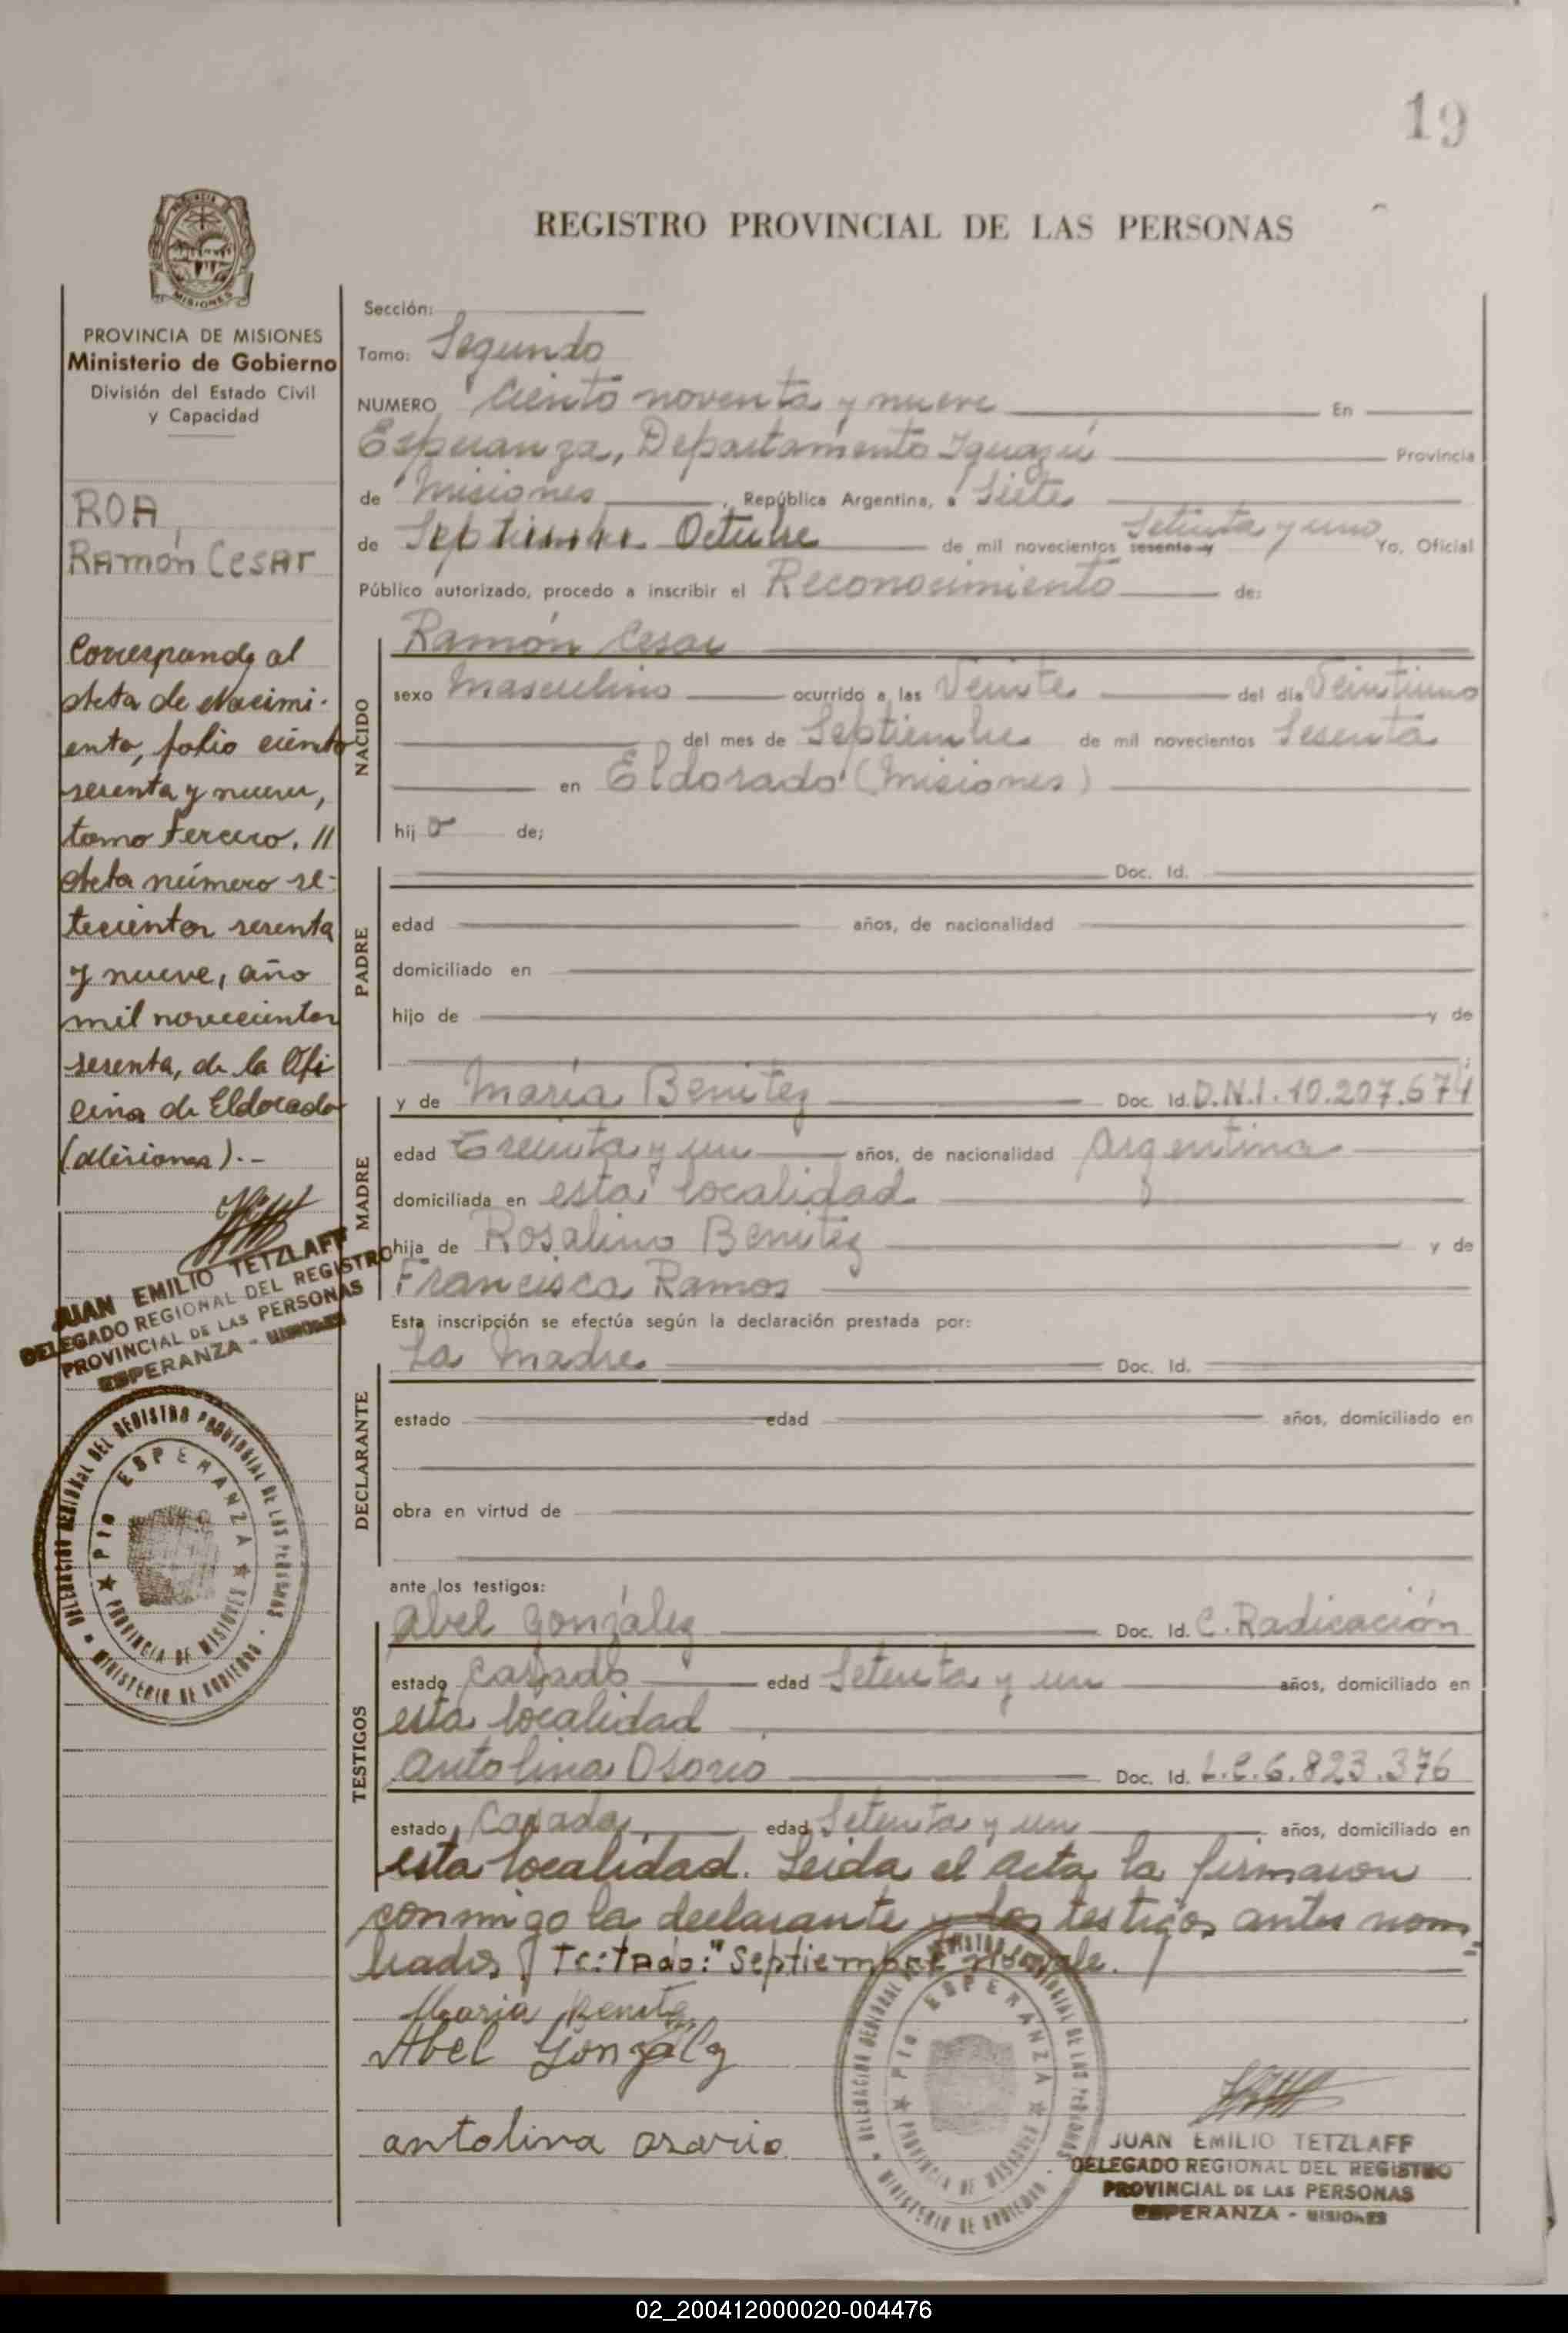 19
REGISTRO PROVINCIAL DE LAS PERSONAS
MISIONES
PROVINCIA DE MISIONES
Ministerio de Gobierno
División del Estado Civil
y Capacidad
ROA,
Ramón Cesar
Corresponde al
Acta de Nacimi-
ento, folio ciento
sesenta y nueve,
tomo tercero, //
Acta número se-
tecientos sesenta
y nueve, año
mil novecientos
sesenta, de la Ofi
cina de Eldorado
(Misiones).-
JUAN EMILIO TETZLAFF
DELEGADO REGIONAL DEL REGISTRO
PROVINCIAL DE LAS PERSONAS
ESPERANZA - MISIONES
DELEGACION REGIONAL DEL REGISTRO PROVINCIAL DE LAS PERSONAS
Pto ESPERANZA
PROVINCIA DE MISIONES
MINISTERIO DE GOBIERNO
Sección:
Tomo: Segundo
NUMERO Ciento noventa y nueve En
Esperanza, Departamento Iguazú Provincia
de Misiones, República Argentina, a Siete
de Septiembre Octubre de mil novecientos sesenta y Setenta y uno Yo, Oficial
Público autorizado, procedo a inscribir el Reconocimiento de:
NACIDO
Ramón Cesar
sexo Masculino ocurrido a las Veinte del día Veintiuno
del mes de Septiembre de mil novecientos Sesenta
en Eldorado (Misiones)
hijo de;
PADRE
Doc. Id.
edad años, de nacionalidad
domiciliado en
hijo de y de
MADRE
y de María Benitez Doc. Id. D.N.I. 10.207.674
edad Treinta y un años, de nacionalidad Argentina
domiciliada en esta localidad
hija de Rosalino Benitez y de
Francisca Ramos
Esta inscripción se efectúa según la declaración prestada por:
DECLARANTE
La Madre Doc. Id.
estado edad años, domiciliado en
obra en virtud de
ante los testigos:
TESTIGOS
Abel González Doc. Id. C. Radicación
estado Casado edad Setenta y un años, domiciliado en
esta localidad
Antolina Osorio Doc. Id. L.C. 6.823.376
estado Casada, edad Setenta y un años, domiciliado en
esta localidad. Leida el acta la firmaron
conmigo la declarante y los testigos antes nom=
brados Testado: "Septiembre" No vale.
Maria Benitez
Abel Gonzalez
antolina osorio
DELEGACION REGIONAL DEL REGISTRO PROVINCIAL DE LAS PERSONAS
Pto ESPERANZA
PROVINCIA DE MISIONES
MINISTERIO DE GOBIERNO
JUAN EMILIO TETZLAFF
DELEGADO REGIONAL DEL REGISTRO
PROVINCIAL DE LAS PERSONAS
ESPERANZA - MISIONES
02_200412000020-004476